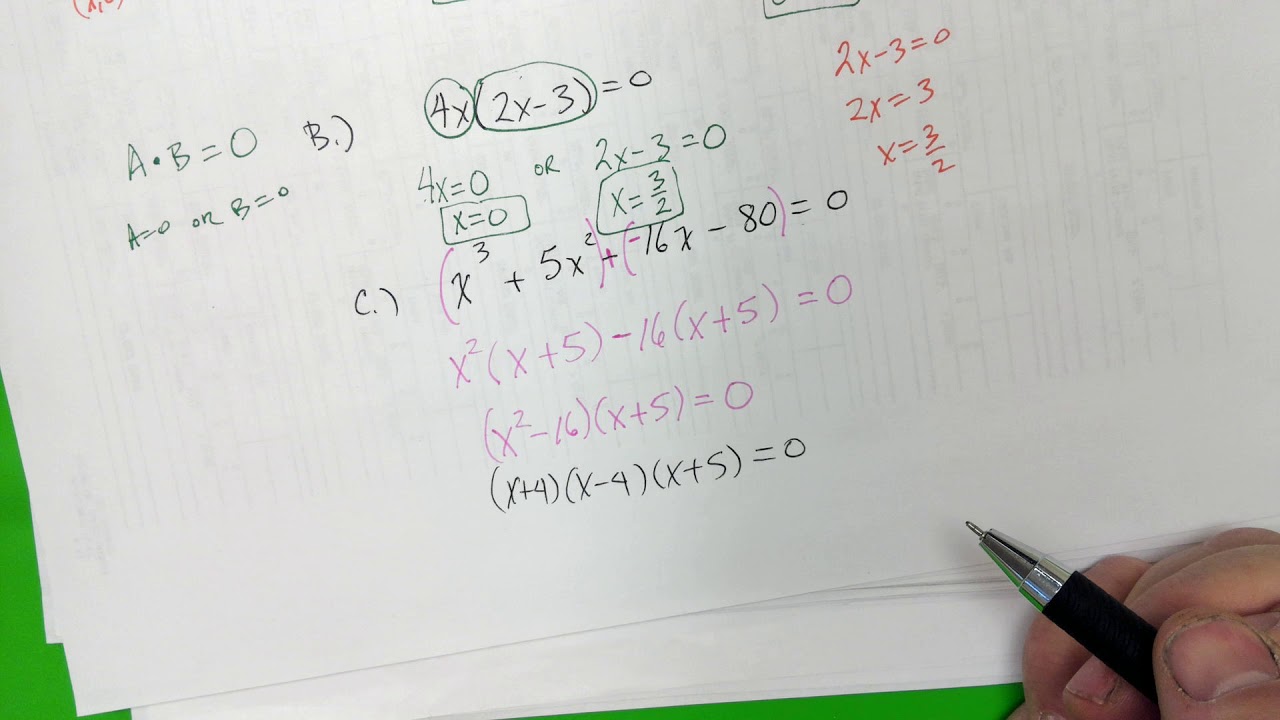 A•B=0
A=0 OR B=0
B.) 4x(2x-3)=0
4x=0 OR 2x-3=0
x=0 x=3/2
2x-3=0
2x=3
x=3/2
C.) (x³+5x²)+(-16x-80)=0
x²(x+5)-16(x+5)=0
(x²-16)(x+5)=0
(x+4)(x-4)(x+5)=0